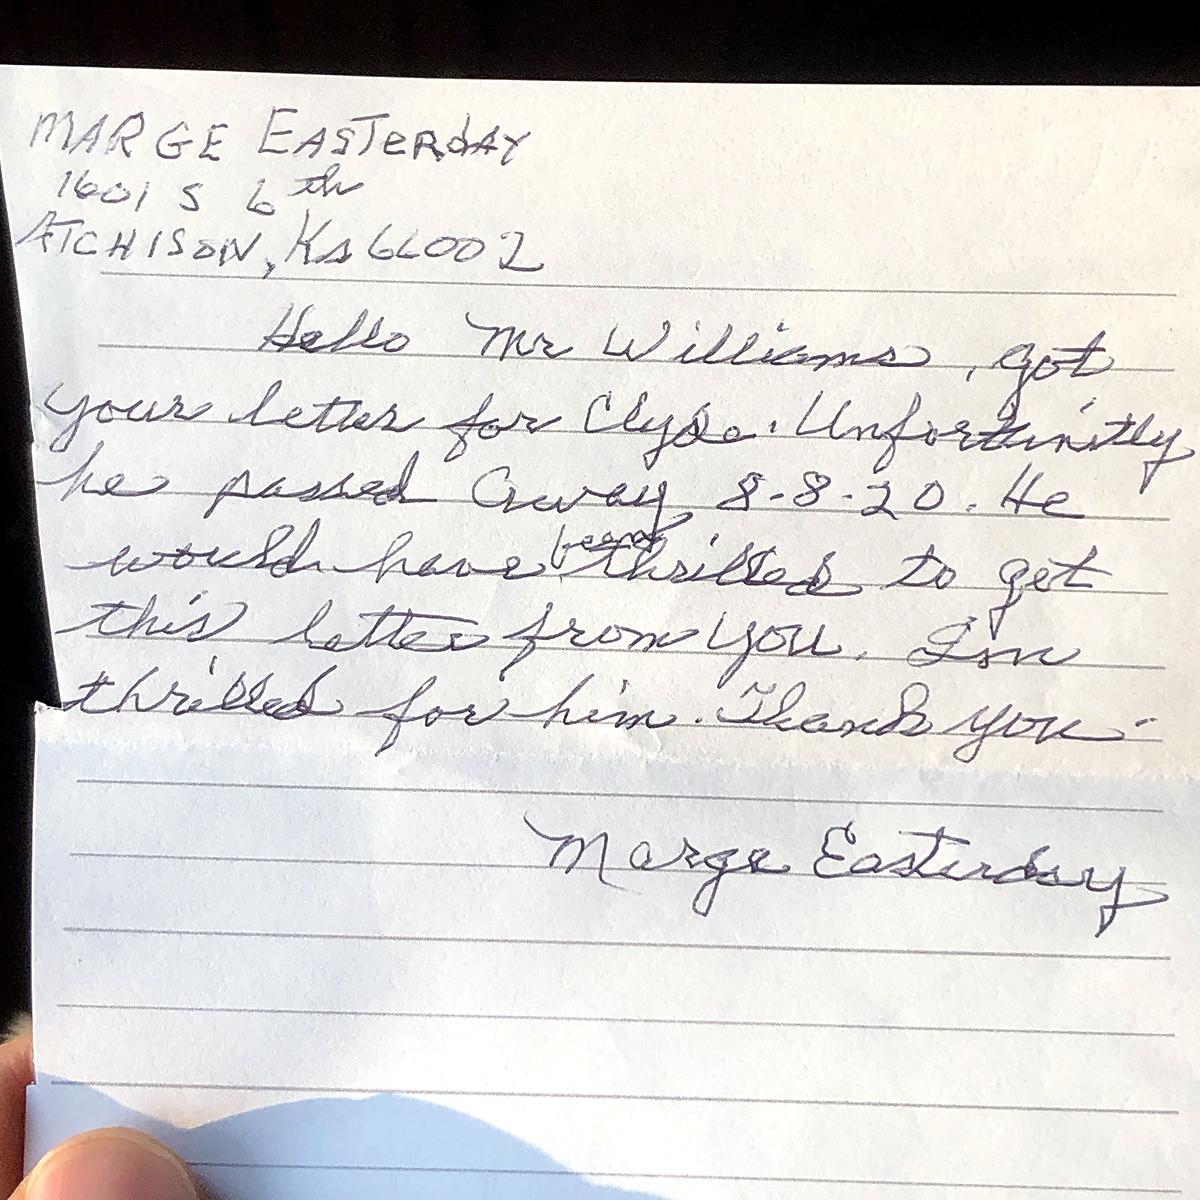 MARGE EASTERDAY
1601 S 6th
ATCHISON, Ks 66002
Hello Mr Williams, got
your letter for Clyde. Unfortinitly
he passed away 8-8-20. He
would have been thrilled to get
this letter from you. I'm
thrilled for him. Thank you-
Marge Easterday